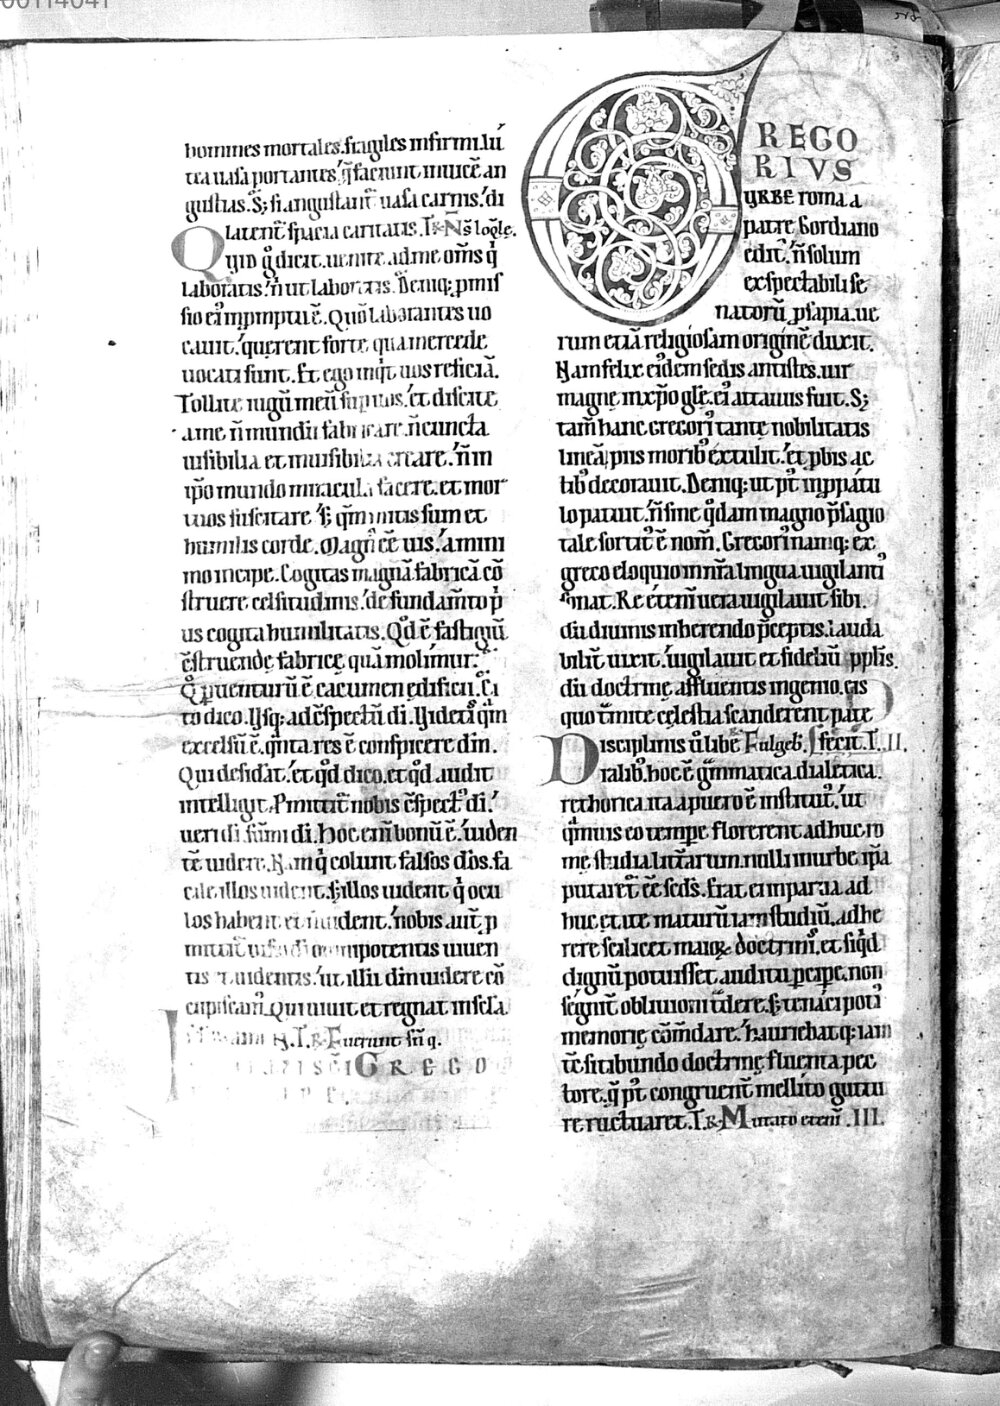 homines mortales. fragiles infirmi. lu
tea uasa portantes. q̄ faciunt inuicē an
gustias. Sꝫ si angustiantˀ uasa carnis. di
latentˀ spacia caritatis.
Quid g̊ dicit. uenite ad me om̄s q̇
laboratis. n̄ ut laboretis. Deniq; pmis
sio ei̓ inpmptu ē. Qm̄ laborantes uo
cauit. querent forte qua mercede
uocati sunt. Et ego inqͥt uos reficiā.
Tollite iugū meū sup uos. et discite
a me n̄ mundū fabricare. n̄ cuncta
uisibilia et inuisibilia creare. n̄ in
ip̄o mundo miracula facere. et mor
tuos suscitare. sꝫ qm̄ mitis sum et
humilis corde. Magn̓ eē uis. a mini
mo incipe. Cogitas magnā fabricā cō
struere celsitudinis. de fundam̄to p̓
us cogita humilitatis. Qd̓ ē fastigiū
ꝯstruendę fabricę quā molimur.
Q̊ puenturū ē cacumen ędificii. Ci
to dico. Vsq; ad ꝯspectū di. Videtis qm̄
excelsū ē. qͣnta res ē conspicere dm̄.
Qui desidāt. et qd̓ dico. et qd̓ audit
intelligit. Pmittitˀ nobis ꝯspectˀ di.
ueri di. sūmi di. Hoc eni̓ bonū ē. uiden
tē uidere. Nam q̇ colunt falsos dōs. fa
cile illos uident. sꝫ illos uident q̇ ocu
los habent et n̄ uident. nobis aut̄ p
mittitˀ uisio di omnipotentis uiuen
tis et uidentis. ut illū dm̄ uidere cō
cupiscam̓. Qui uiuit et regnat in scl̄a
GREGO
GREGO
RIVS
VRBE roma a
patre Gordiano
edit̓. n̄ solum
ex spectabili se
natorū ꝓsapia. ue
rum etiā religiosam originē duxit.
Nam felix ei̓dem sedis antistes. uir
magnę in xp̄o gl̄ę. ei̓ attauus fuit. Sꝫ
tam̄ hanc Gregori̓ tantę nobilitatis
lineā piis morib̓ extulit. et pbis ac
tib̓ decorauit. Deniq; ut pt̓ in ꝓpatu
lo patuit. n̄ sine qͦdam magno p̄sagio
tale sortit̓ ē nom̄. Gregori̓ namq; ex
greco eloquio in nr̄a lingua uigilantˀ
sonat. Re et̓eni̓ uera uigilauit sibi.
dū diuinis inherendo p̄ceptis. lauda
bilit̓ uixit. uigilauit et fideliū pplis.
dū doctrinę affluentis ingenio. eis
quo t̓mite cęlestia scanderent pate
fecit. L. II.
Disciplinis u̓ libē
ralib̓. hoc ē gͣmmatica. dialetica.
rethorica. ita a puero ē institut̓. ut
qͣmuis eo tempe florerent adhuc ro
mę studia litt̓arum. nulli in urbe ip̄a
putaretˀ eē scd̄s. Erat ei in parua ad
huc ętate maturū iam studiū. adhe
rere scilicet maioꝝ doctrinis. et siqͥd
dignū potuisset auditu pcipe. non
segnit̓ obliuioni t̓dere. sꝫ tenaci poti̓
memorię cōm̄dare. Hauriebat q; iam
tē sitibundo doctrinę fluenta pec
tore. q̄ pt̓ congruenti mellito guttu
re ructuaret. L. Mutato eteni̓. III.